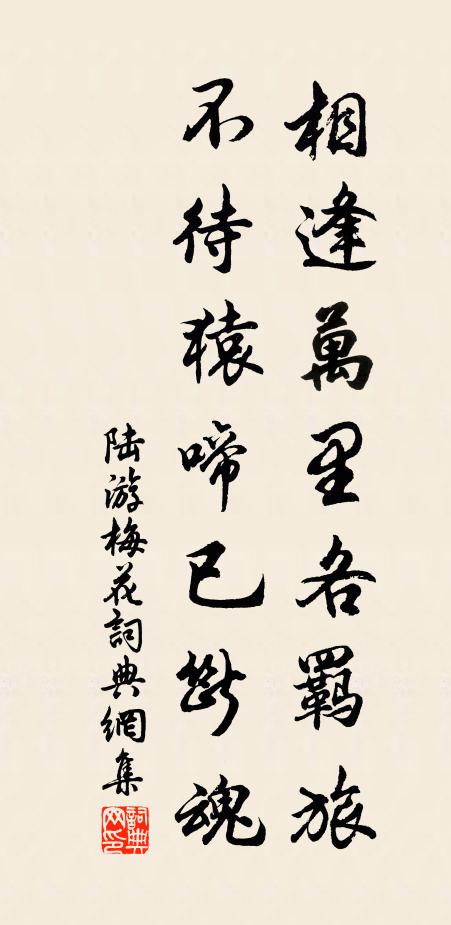 相逢萬里各羈旅
不待猿啼已斷魂
陆游梅花詞典網集
詞典网印